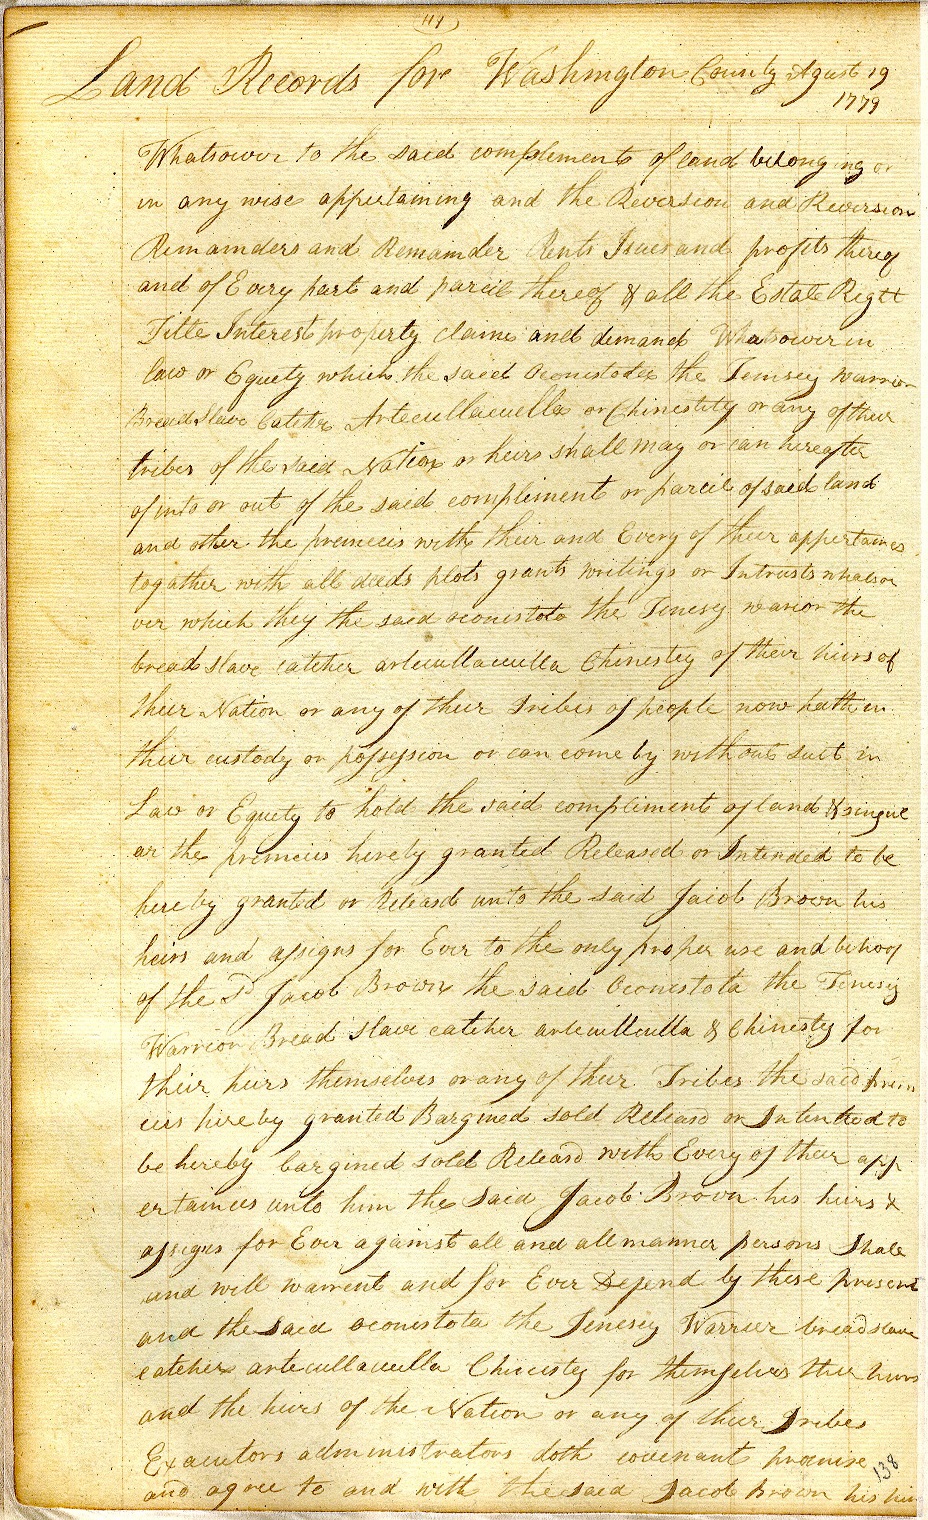 117
Land Records for Washington County Agust 19
1779
Whatsower to the said compliments of land belonging or
in any wise appertaining and the Reversion and Reversion
Remainders and Remainder Rents Issues and profits thereof
and of Every part and parcil thereof & all the Estate Regtt
Title Interest property claime and demand Whatsower in
law or Equety which the said Oconistota the Tenisey warrior
Bread Slave Catcher Artecullacuella or Chinestity or any of their
tribes of the said Nation or heirs shall may or can hereafter
of into or out of the said compliment or parcil of said land
and other the premices with their and Every of their appertaines
togather with all deeds plots grants writings or Intrusts whatso
ver which they the said oconistota the Tenesey warior the
bread slave catcher artecullacuella Chinestey of their heirs of
their Nation or any of their Tribes of people now hath in
their custody or possession or can come by without suit in
Law or Equety to hold the said compliment of land & singul
ar the premices hereby granted Released or Intended to be
here by granted or Released unto the said Jacob Brown his
heirs and assigns for Ever to the only proper use and behoof
of the Sd Jacob Brown the said Oconistota the Tenesey
Warrior Bread slave catcher artecullculla & Chinestey for
their heirs themselves or any of their Tribes the said prem
ices hereby granted Bargined sold Releasd or Intended to
be hereby bargined sold Releasd with Every of their app
ertainces unto him the Said Jacob Brown his heirs &
assigns for Ever against all and all manner persons Shall
and will warrent and for Ever Defend by these present
and the said oconistota the Tenesey Warrier bread slave
catcher artecullacuella Chinestey for themselves their heirs
and the heirs of the Nation or any of their Tribes
Executors administrators doth covenant promise
and agree to and with the said Jacob Brown his
138